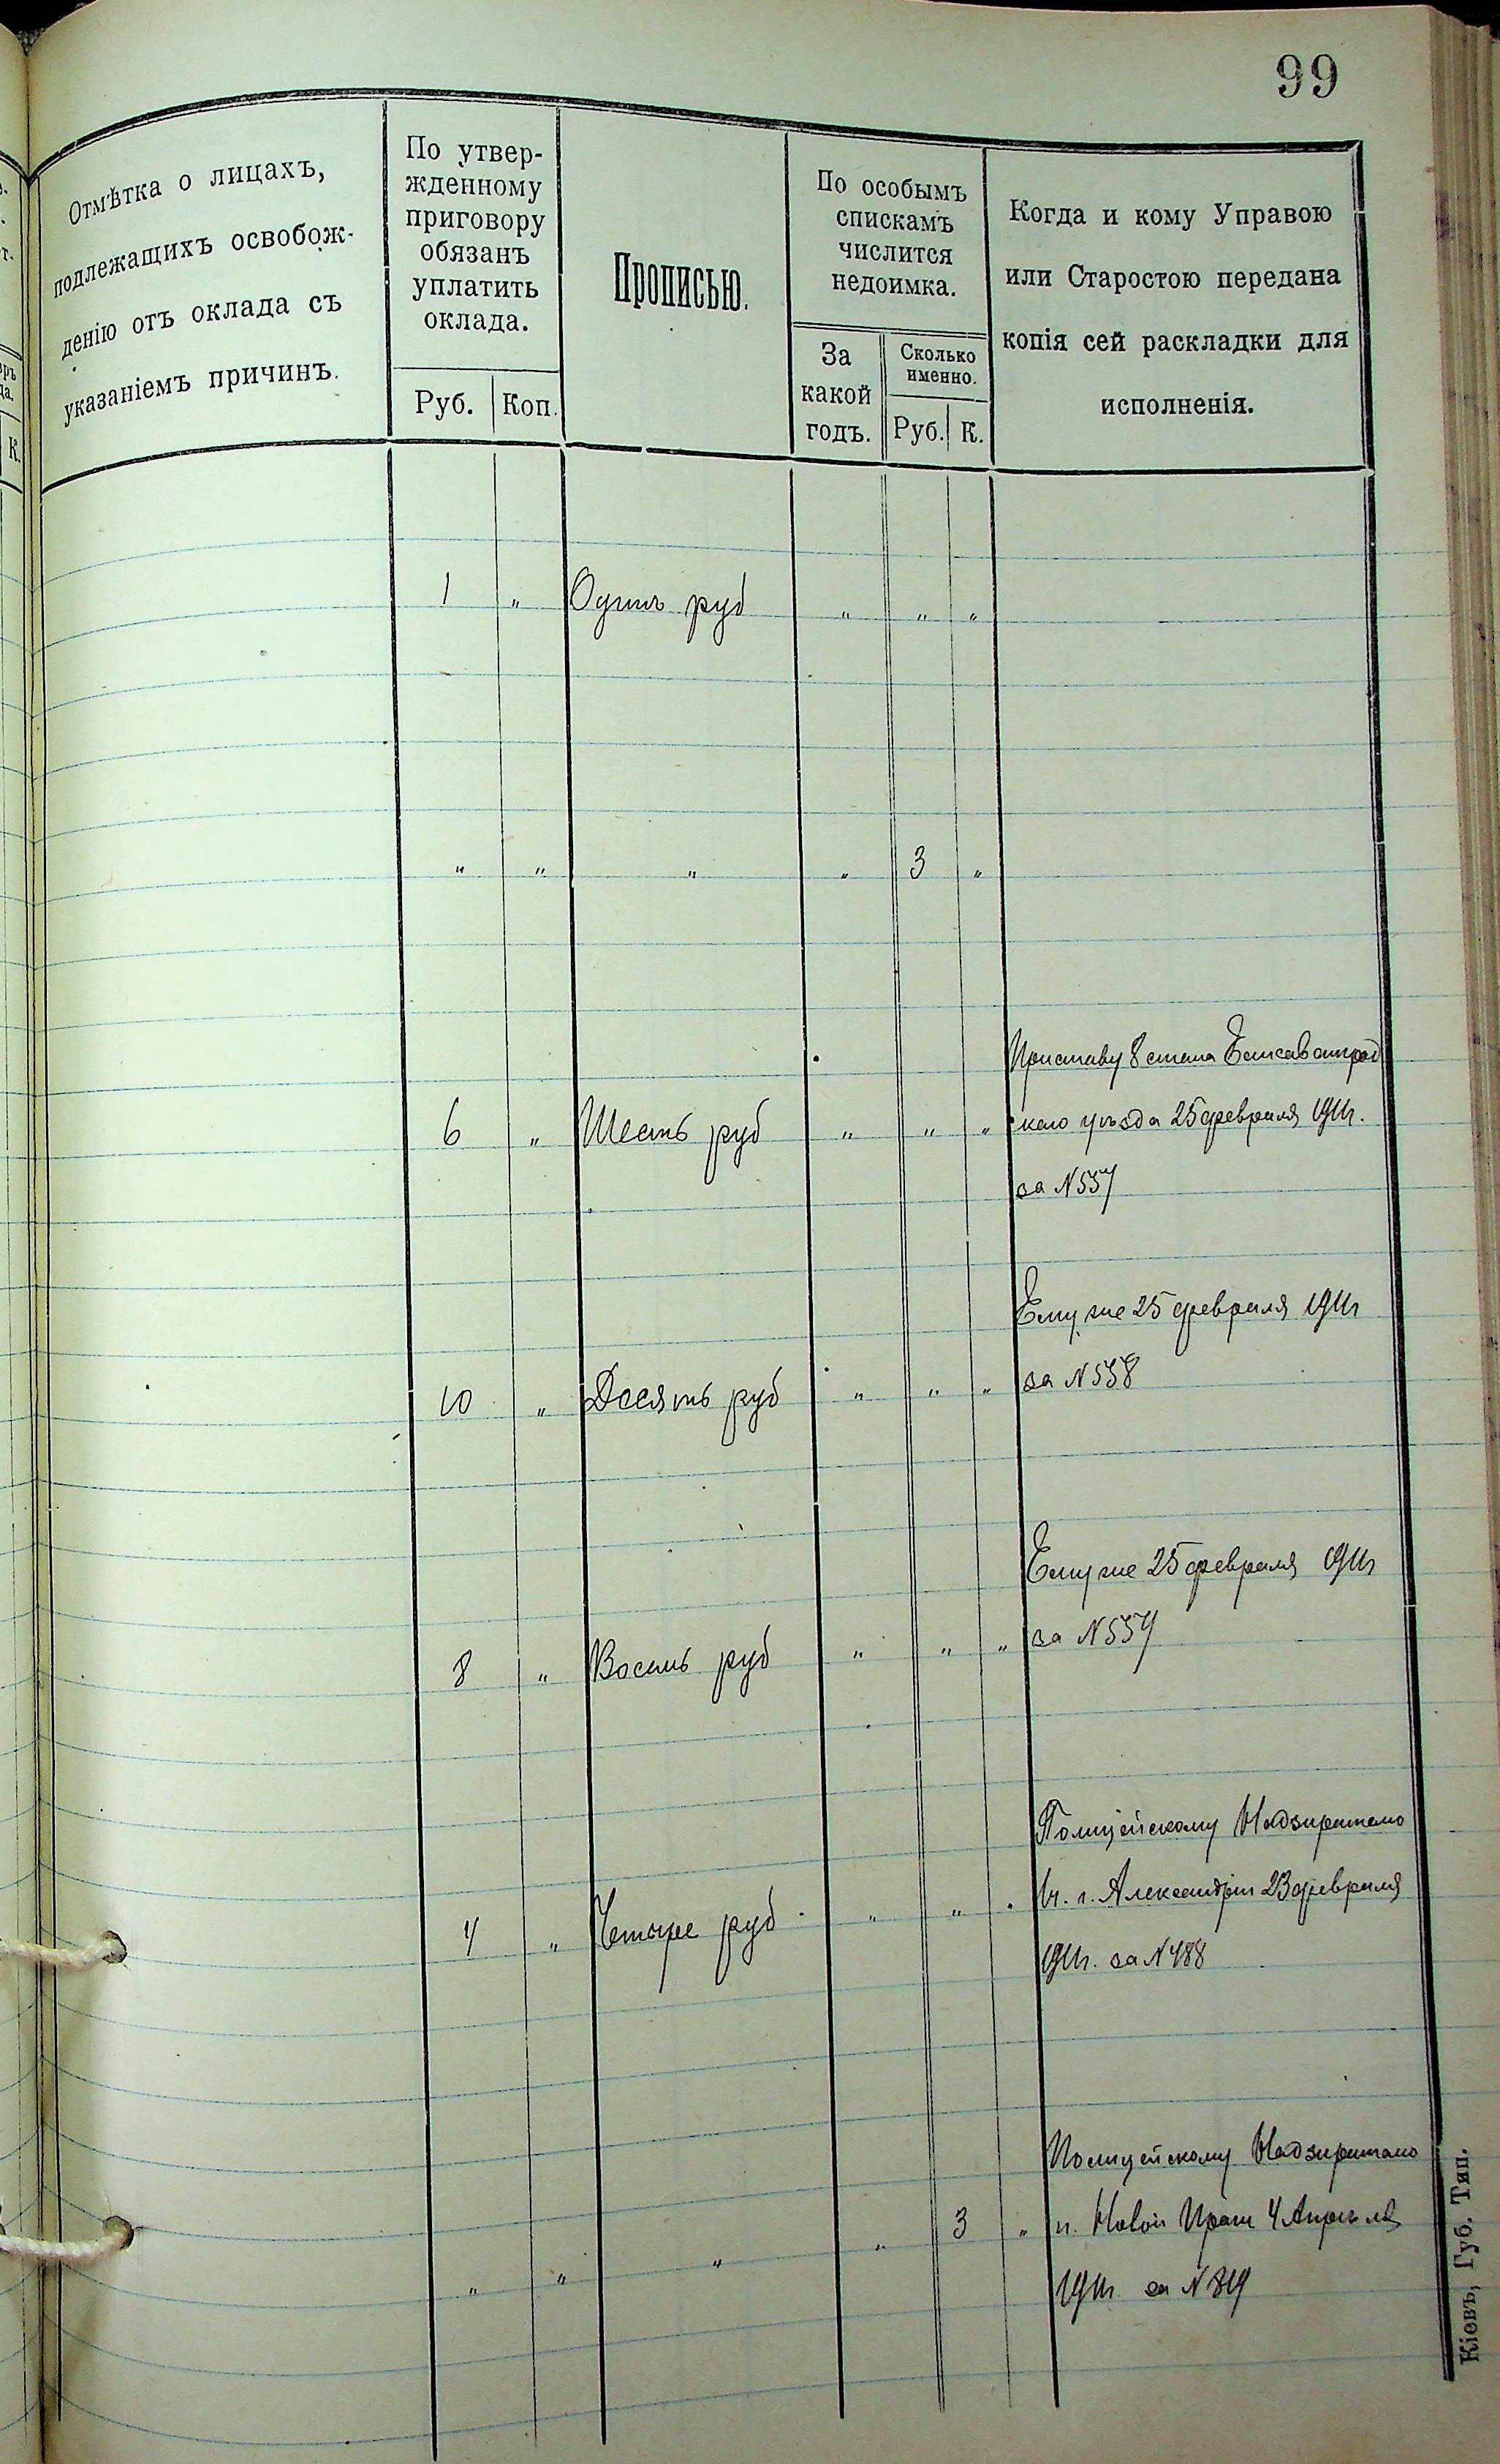 99
Отмѣтка о лицахъ,
подлежащихъ освобож-
денію отъ оклада съ
указаніемъ причинъ.
По утвер-
жденному
приговору
обязанъ
уплатить
оклада.
Руб. Коп.
Прописью.
По особымъ
спискамъ
числится
недоимка.
За
какой
годъ.
Сколько
именно.
Руб. К.
Когда и кому Управою
или Старостою передана
копія сей раскладки для
исполненія.
1 " Одинъ руб " " "
" " " " 3 "
Приставу 8 стана Елисаветград
6 " Шесть руб " " " скаго уѣзда 25 февраля 1911г.
за N 557
Ему же 25 февраля 1911г
10 " Десять руб " " " за N 558
Ему же 25 февраля 1911г
8 " Восемь руб " " " за N 559
Полицейскому Надзирателю
4 " Четыре руб " " " г. Александріи 23 февраля
1911г. за N 488
Полицейскому Надзирателю
" " " " 3 " п. Новой Праги 4 Апрѣля
1911г за N 819
Кіевъ, Губ. Тип.
К.